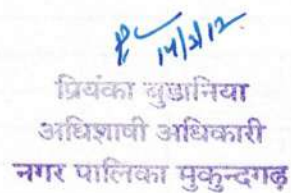 14/2/12
प्रियंका बुडानिया
अधिशाषी अधिकारी
नगर पालिका मुकुन्दगढ़